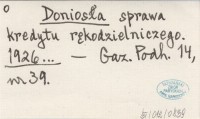 Doniosła sprawa
kredytu rękodzielniczego.
1926... — Gaz. Podh. 14,
nr 39.